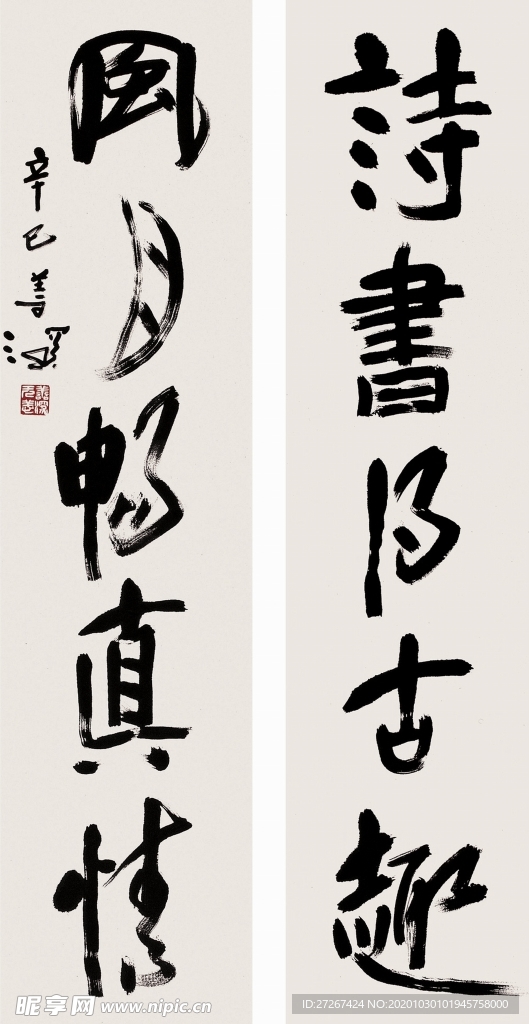 詩書得古趣
風月暢真情
辛巳善深
昵享网 www.nipic.cn
ID:27267424 NO:20201030101945758000